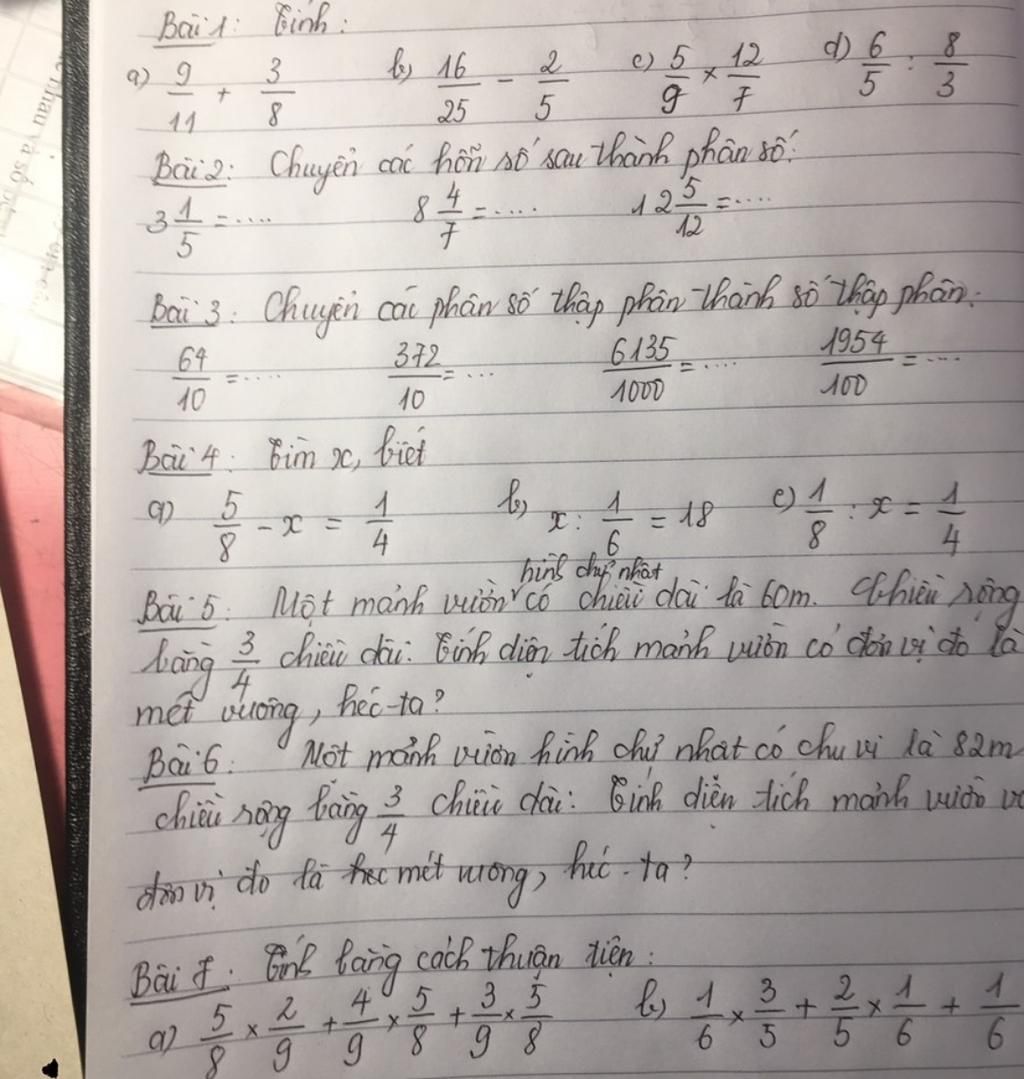 Bài 1: Tính:
a) 9/11 + 3/8 b) 16/25 - 2/5 c) 5/9 × 12/7 d) 6/5 : 8/3
Bài 2: Chuyển các hỗn số sau thành phân số:
3 1/5 = .... 8 4/7 = .... 12 5/12 = ....
Bài 3: Chuyển các phân số thập phân thành số thập phân:
64/10 = .... 372/10 = ... 6135/1000 = .... 1954/100 = ....
Bài 4: Tìm x, biết
a) 5/8 - x = 1/4 b) x : 1/6 = 18 c) 1/8 : x = 1/4
hình chữ nhật
Bài 5: Một mảnh vườn có chiều dài là 60m. Chiều rộng
bằng 3/4 chiều dài. Tính diện tích mảnh vườn có đơn vị đo là
mét vuông, héc-ta?
Bài 6: Một mảnh vườn hình chữ nhật có chu vi là 82m
chiều rộng bằng 3/4 chiều dài: Tính diện tích mảnh vườn
đơn vị đo là mét vuông, héc-ta?
Bài 7: Tính bằng cách thuận tiện:
a) 5/8 × 2/9 + 4/9 × 5/8 + 3/9 × 5/8 b) 1/6 × 3/5 + 2/5 × 1/6 + 1/6